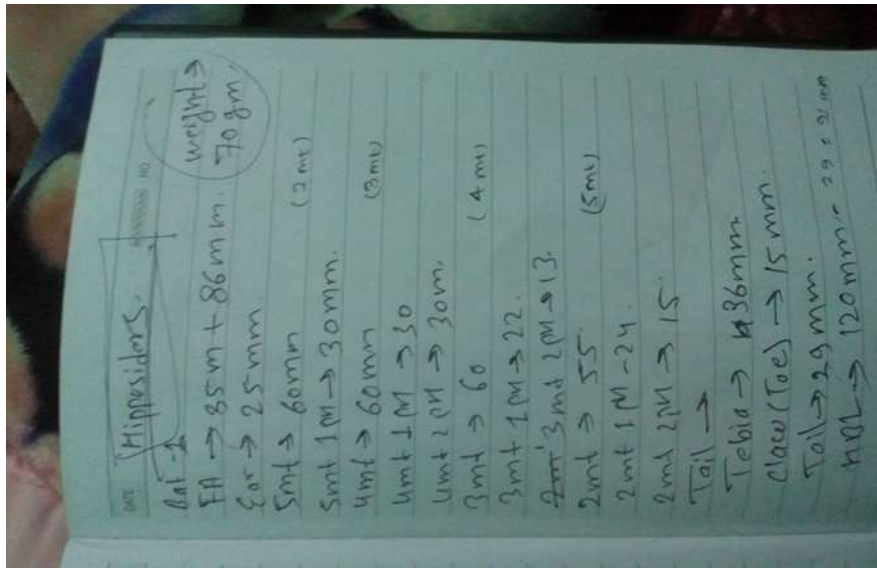 DATE
Hipposiders.
Bat-1
weight →
70 gm.
FA → 85m + 86mm.
Ear → 25mm.
5mt → 60mm (2mt)
5mt 1PH → 30mm.
4mt → 60mm (3mt)
4mt 1PH → 30
4mt 2PH → 30m.
3mt → 60 (4mt)
3mt 1PH → 22.
3mt 2PH → 13.
2mt → 55 (5mt)
2mt 1PH - 24.
2mt 2PH → 15.
Tail →
Tebia → 36mm.
Claw (Toe) → 15mm.
Tail → 29mm.
HBL → 120mm.